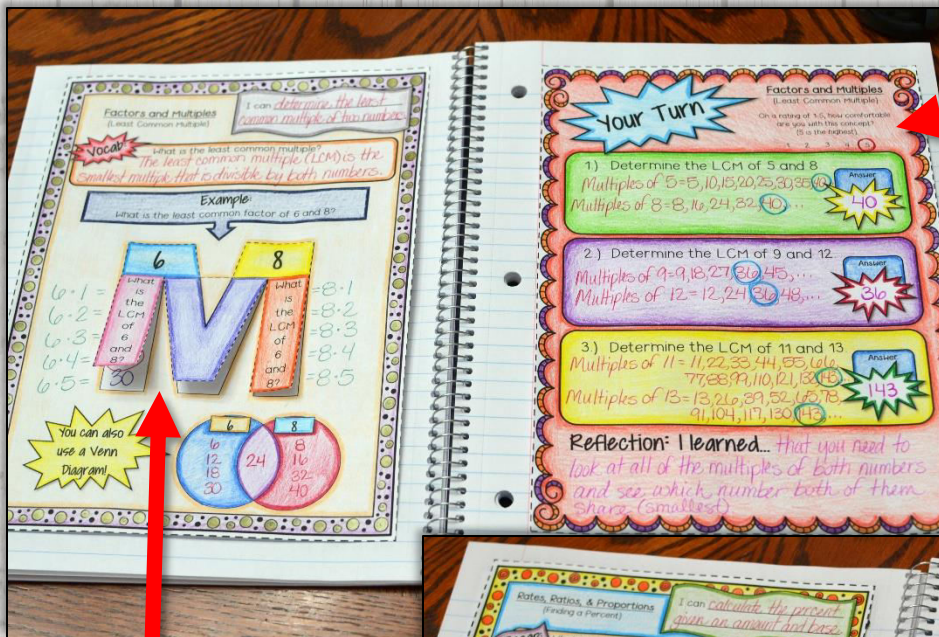 Factors and Multiples
(Least Common Multiple)
I can determine the least
common multiple of two numbers.
Vocab
What is the least common multiple?
The least common multiple (LCM) is the
smallest multiple that is divisible by both numbers.
Example:
What is the least common factor of 6 and 8?
6 8
What is the LCM of 6 and 8?
What is the LCM of 6 and 8?
6·1 =
6·2 =
6·3 =
6·4 =
6·5 =
30
=8·1
=8·2
=8·3
=8·4
=8·5
You can also
use a Venn
Diagram!
6 8
6
12
18
30
24
8
16
32
40
Your Turn
Factors and Multiples
(Least Common Multiple)
On a rating of 1-5, how comfortable
are you with this concept?
(5 is the highest)
1 2 3 4 5
1) Determine the LCM of 5 and 8
Multiples of 5=5,10,15,20,25,30,35,40
Multiples of 8=8,16,24,32,40,...
Answer
40
2) Determine the LCM of 9 and 12
Multiples of 9=9,18,27,36,45,...
Multiples of 12=12,24,36,48,...
Answer
36
3.) Determine the LCM of 11 and 13
Multiples of 11=11,22,33,44,55,66,
77,88,99,110,121,132,143,
Multiples of 13=13,26,39,52,65,78,
91,104,117,130,143...
Answer
143
Reflection: I learned... that you need to
look at all of the multiples of both numbers
and see which number both of them
share (smallest).
Rates, Ratios, & Proportions
(Finding a Percent)
I can calculate the percent
given an amount and base.